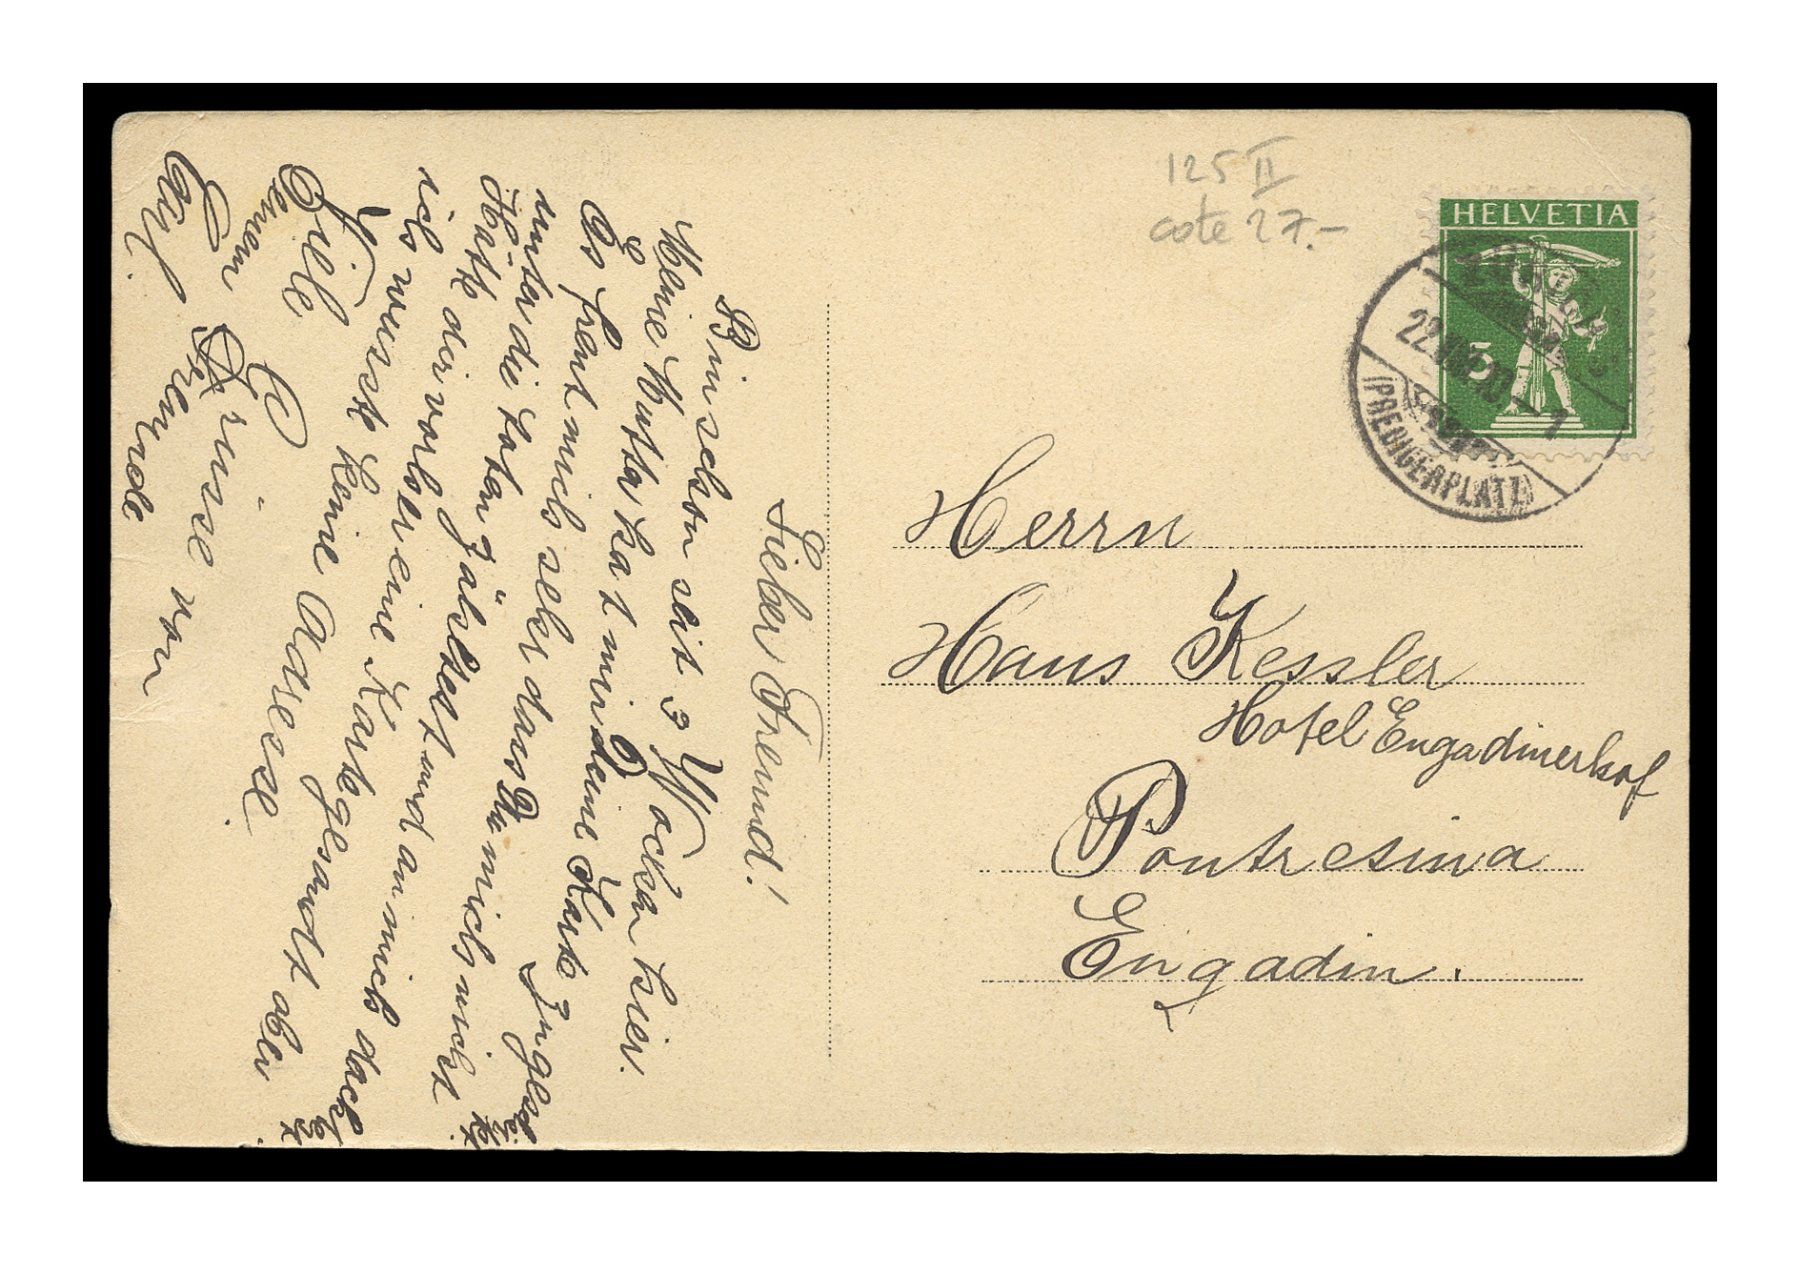 125 II
cote 27.-
HELVETIA
5
22.VIII.10-1
(PREDIGERPLATZ)
Lieber Freund!
Bin schon seit 3 Wochen hier.
Meine Mutter hat mir deine Karte
Es freut mich sehr dass Du mich nicht
unter die toten zählst und an mich dachtest
Hätte dir vorher eine Karte gesandt aber
ich wusste keine Adresse.
Viele Grüsse von
deinem Freunde
Herrn
Hans Kessler
Hotel Engadinerhof
Pontresina
Engadin.